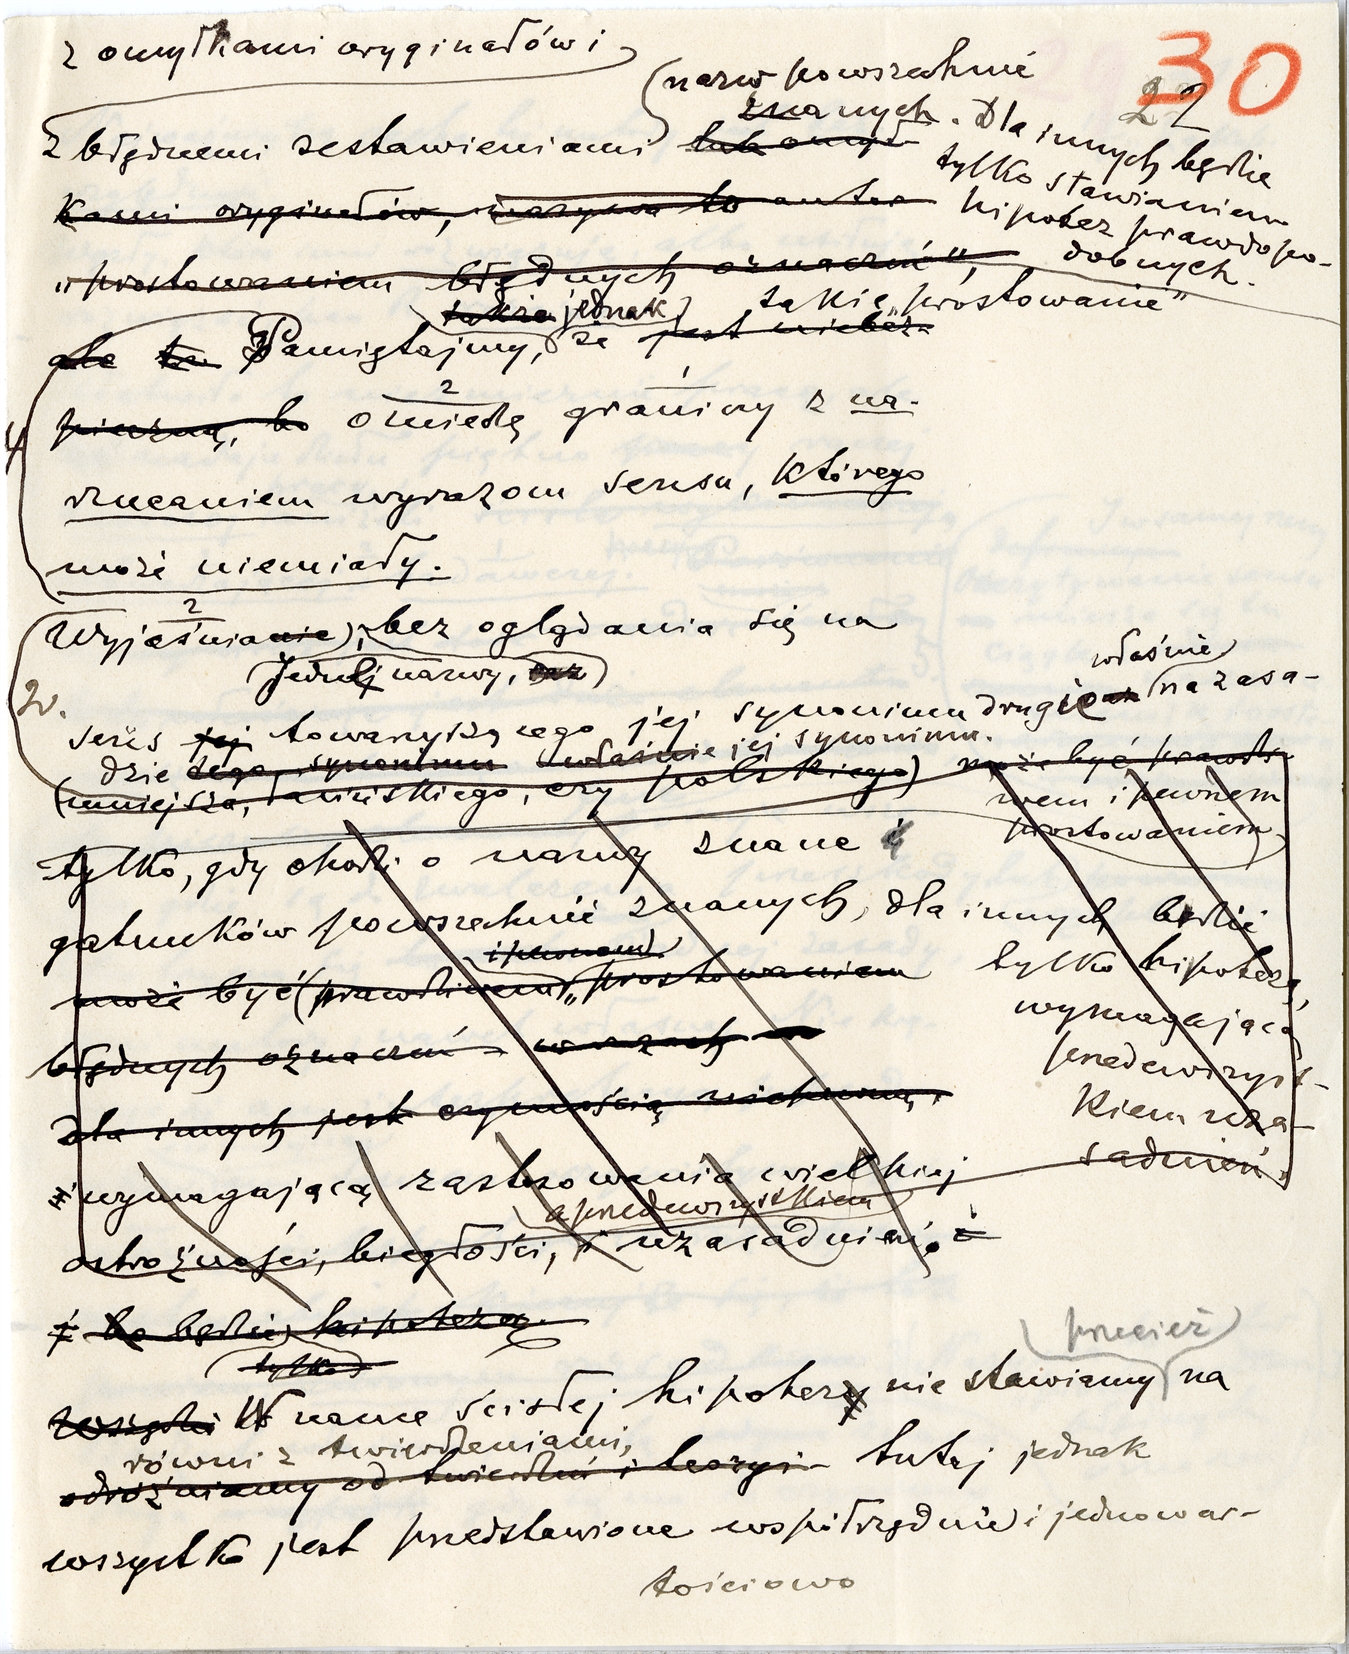 z omyłkami oryginałów i
30
22
nazw powszechnie
znanych. Dla innych będzie
tylko stawianiem
hipotez prawdopo-
dobnych.
z błędnemi zestawieniami lub omył-
kami oryginałów, nazywa to autor
„prostowaniem błędnych oznaczeń",
także jednak takie „prostowanie"
ale to Pamiętajmy, że jest niebez-
2 1
pieczną, bo o miedzę graniczy z na-
rzucaniem wyrazom sensu, którego
może niemiały.
4
2
Wyjaśnianie, bez oglądania się na
jednej nazwy,
2.
sens jej towarzyszącego jej synonimu drugiej właśnie na zasa-
dzie tego synonimu właśnie jej synonimu.
(mniejsza, łacińskiego, czy polskiego) może być prawdzi-
wem i pewnem
prostowaniem
tylko, gdy chodzi o nazwy znane i
gatunków powszechnie znanych, dla innych będzie
i pewnem
może być (prawdziwem) „prostowaniem tylko hipotezą,
wymagającą
błędnych oznaczeń - w rzach
przedewszyst-
dla innych jest czynnością
kiem uza-
sadnień.
wymagającą zastosowania wielkiej
a przedewszystkiem
ostrożności, biegłości, i uzasadnienia i
i bo będzie hipotezą.
tylko
przecież
W nauce ścisłej hipotezy nie stawiamy na
równi z twierdzeniami,
odróżniamy od twierdzeń i teoryi - tutaj jednak
wszystko jest przedstawione współrzędnie i jednowar-
tościowo